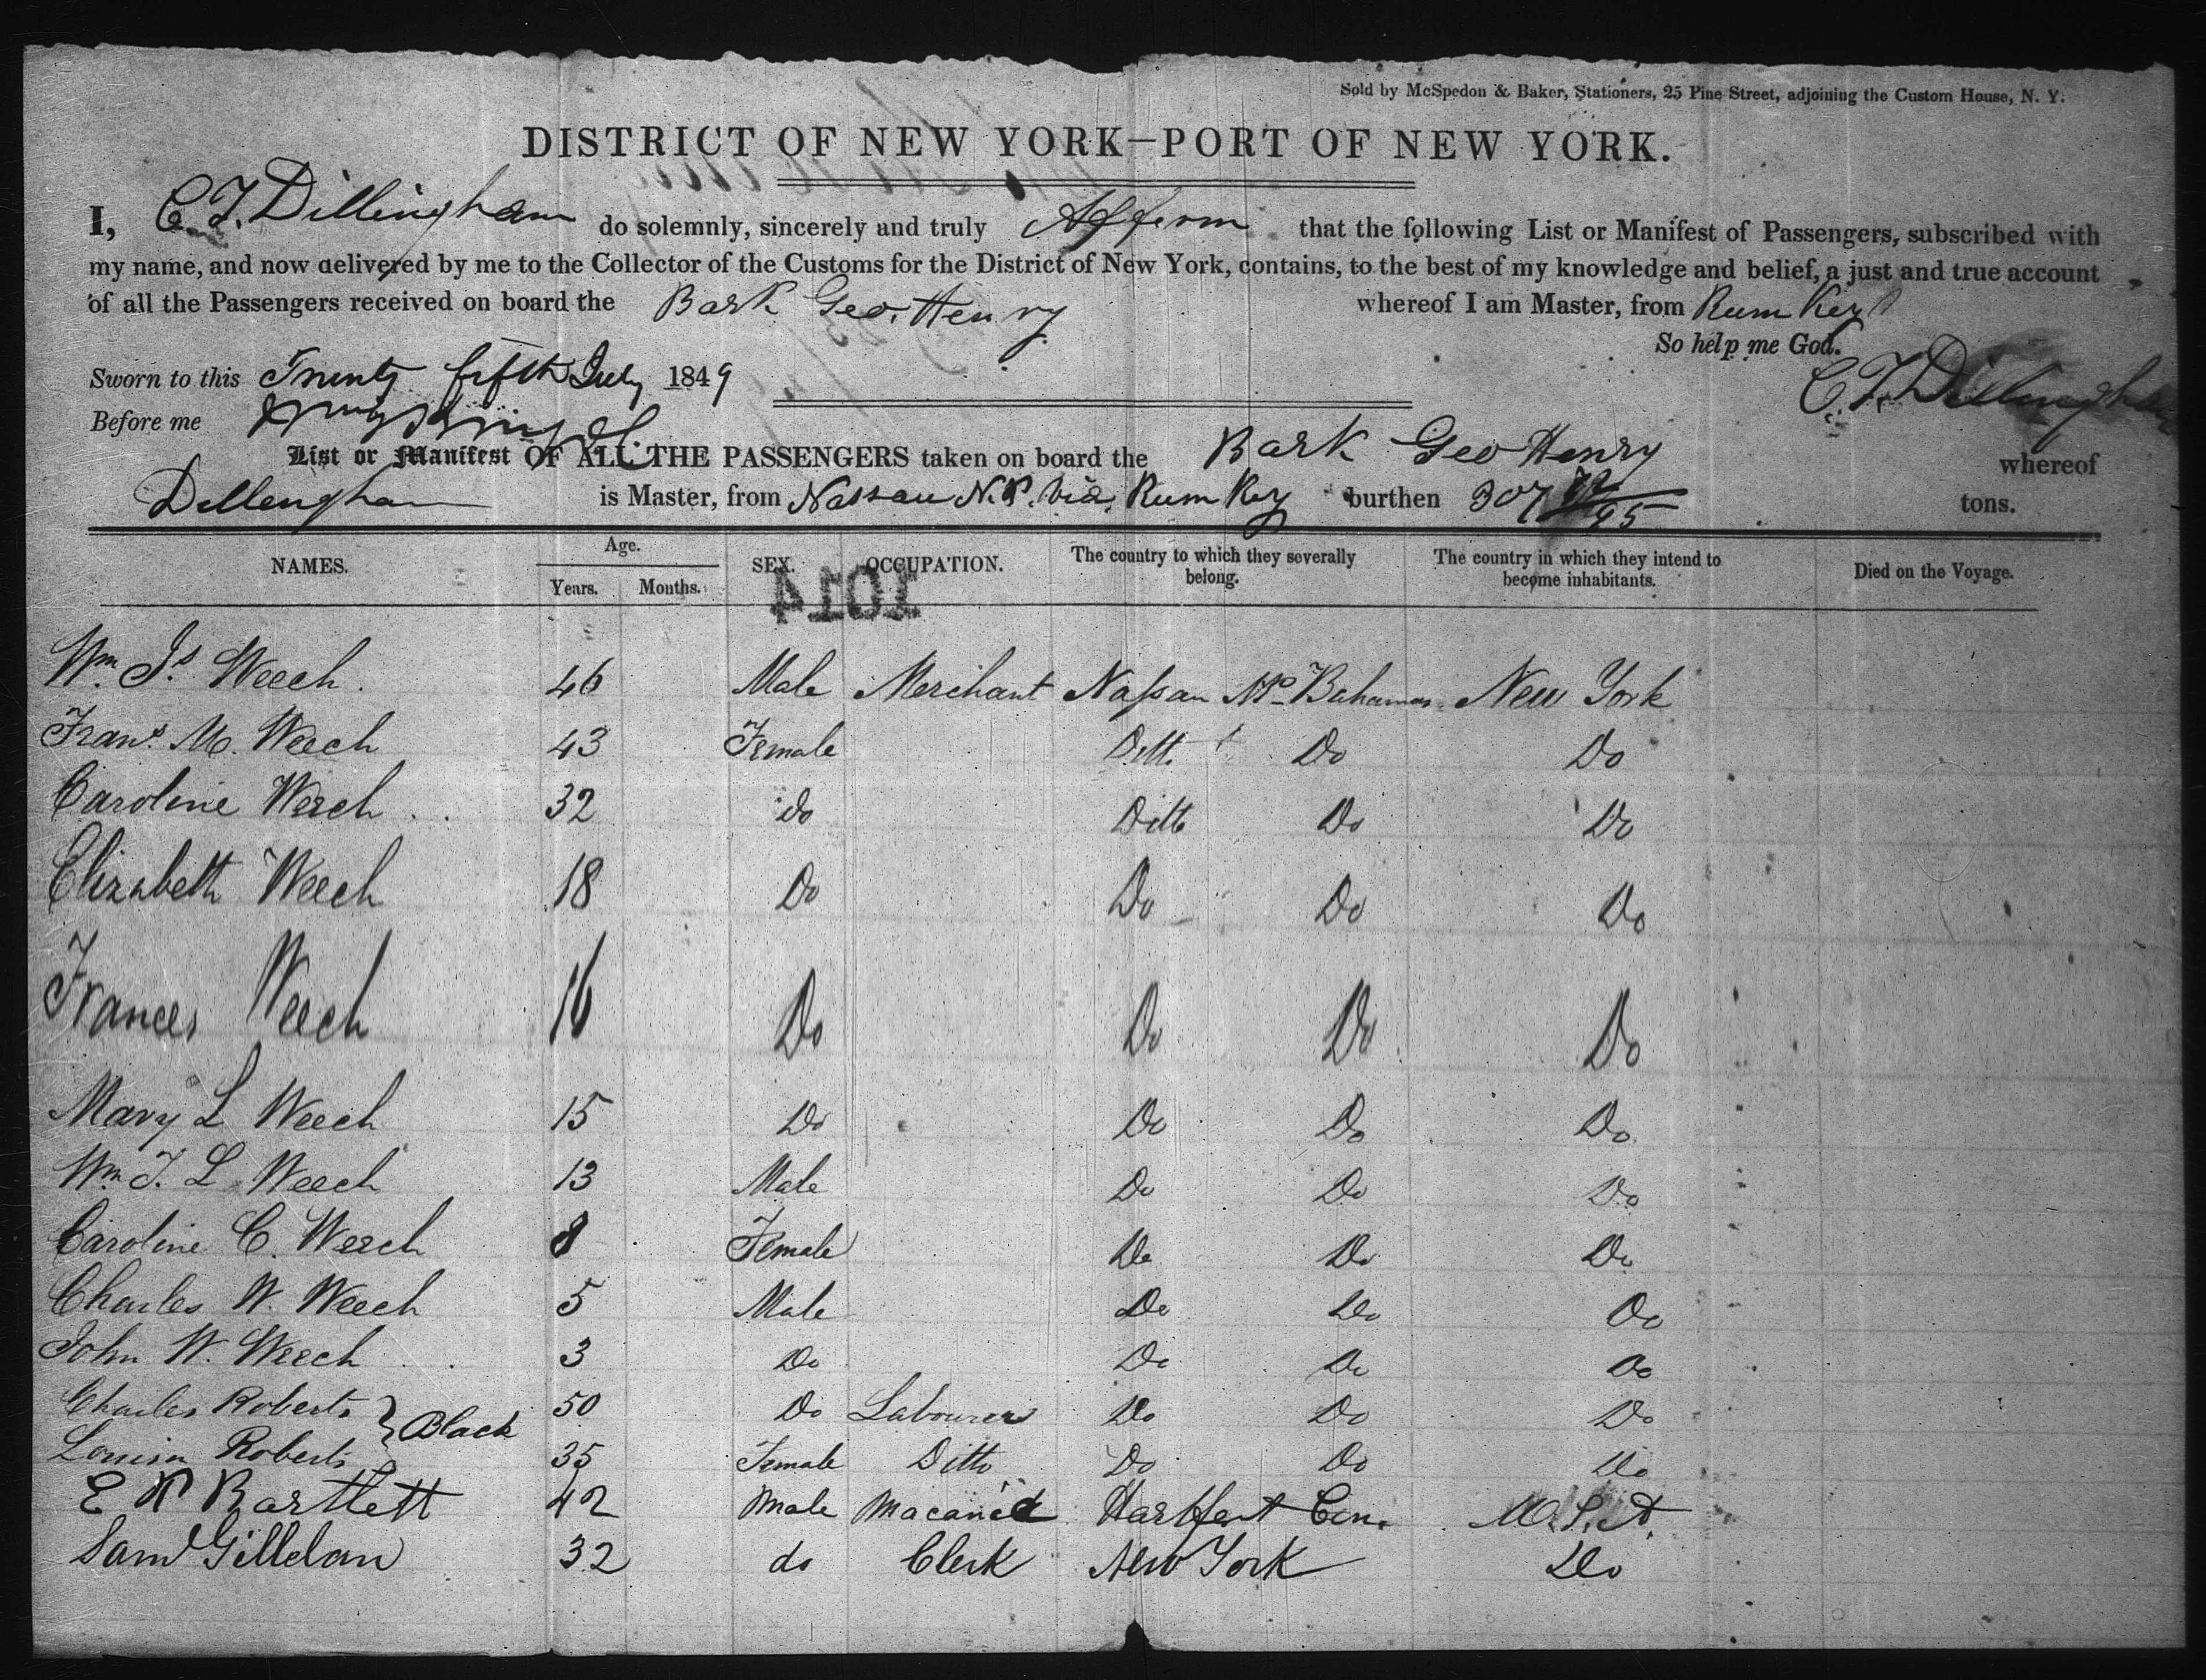 Sold by McSpedon & Baker, Stationers, 25 Pine Street, adjoining the Custom House, N. Y.
DISTRICT OF NEW YORK—PORT OF NEW YORK.
I, C. T. Dillingham do solemnly, sincerely and truly Afferm that the following List or Manifest of Passengers, subscribed with
my name, and now delivered by me to the Collector of the Customs for the District of New York, contains, to the best of my knowledge and belief, a just and true account
of all the Passengers received on board the Bark Geo. Henry whereof I am Master, from Rum Key
So help me God.
Sworn to this Twenty fifth July 1849 C. T. Dillingham
Before me
List or Manifest OF ALL THE PASSENGERS taken on board the Bark Geo Henry whereof
Dellengham is Master, from Nassau N.P. via Rum Key burthen 307 /95 tons.
NAMES. Age. Years. Months. SEX. OCCUPATION. The country to which they severally belong. The country in which they intend to become inhabitants. Died on the Voyage.
1014
Wm. Js. Weech. 46 Male Merchant Nassau NP. Bahamas New York
Frans. M. Weech 43 Female Ditto Do Do
Caroline Weech 32 do Ditto Do Do
Elizabeth Weech 18 Do Do Do Do
Frances Weech 16 Do Do Do Do
Mary L Weech 15 Do Do Do Do
Wm. J. L Weech 13 Male Do Do Do
Caroline C. Weech 8 Female Do Do Do
Charles W. Weech 5 Male Do Do Do
John W. Weech 3 Do Do Do Do
Charles Roberts } Black 50 Do Labourer Do Do Do
Louisa Roberts 35 Female Ditto Do Do Do
E P Bartlett 42 Male Macanick Hartfort Con. U.S.A.
Saml Gilleland 32 do Clerk New York Do